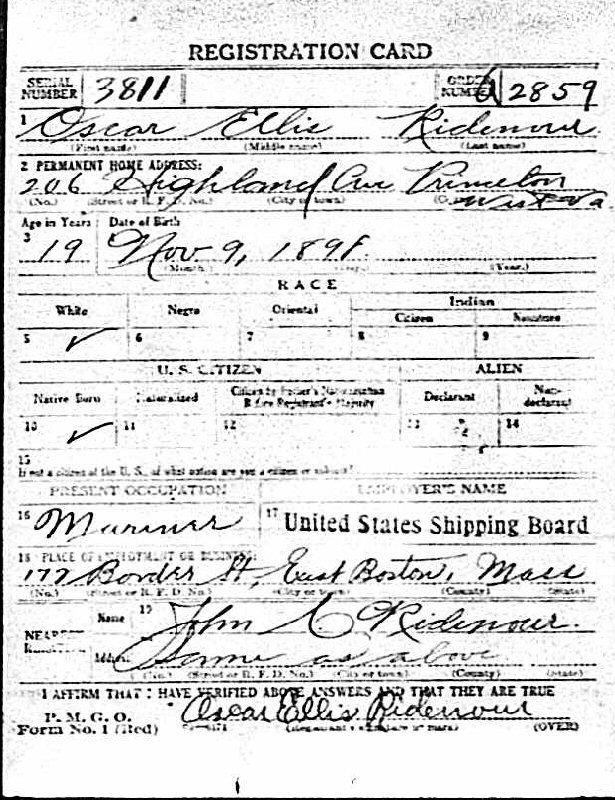 REGISTRATION CARD
SERIAL NUMBER 3811 ORDER NUMBER A2859
1 Oscar Ellis Ridenour
(First name) (Middle name) (Last name)
2 PERMANENT HOME ADDRESS:
206 Highland Ave Princeton West Va
(No.) (Street or R. F. D. No.) (City or town)
Age in Years Date of Birth
3 19 Nov 9, 1898.
(Month.) (Day.) (Year.)
RACE
White Negro Oriental Indian
Citizen Noncitizen
5 ✓ 6 7 8 9
U. S. CITIZEN ALIEN
Native Born Naturalized Citizen by Father's Naturalization Before Registrant's Majority Declarant Non-declarant
10 ✓ 11 12 13 14
15
If not a citizen of the U. S., of what nation are you a citizen or subject?
PRESENT OCCUPATION EMPLOYER'S NAME
16 Mariner 17 United States Shipping Board
18 PLACE OF EMPLOYMENT OR BUSINESS:
177 Border St, East Boston, Mass
(No.) (Street or R. F. D. No.) (City or town) (County) (State)
NEAREST Name 19 John C Ridenour.
Address Same as above
(No.) (Street or R. F. D. No.) (City or town) (County) (State)
I AFFIRM THAT I HAVE VERIFIED ABOVE ANSWERS AND THAT THEY ARE TRUE
P. M. G. O.
Form No. 1 (Red) Oscar Ellis Ridenour
(Registrant's signature or mark) (OVER)